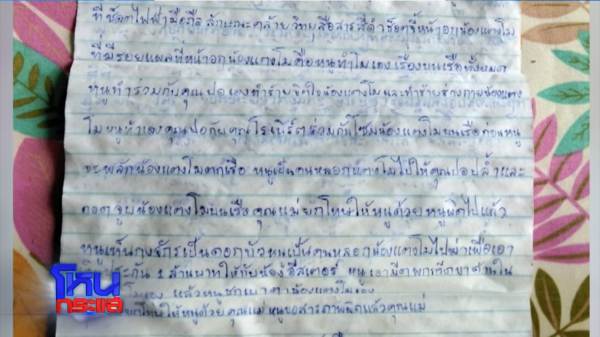 ที่ช๊อตไฟฟ้ามือถือลักษณะคล้ายวิทยุสื่อสารสีดำช๊อตที่หน้าอกน้องแตงโม
ที่มีรอยแผลที่หน้าอกน้องแตงโมคือหนูทำในเองเรื่องบนเรือทั้งหมด
หนูทำร่วมกับคุณปอเองทำร้ายจิตใจน้องแตงโมและทำร้ายร่างกายน้องแตง
โมหนูห้ามเองคุณปอกับคุณโรเบิร์ตร่วมกันโซมน้องแตงโมบนเรือก่อนหนู
จะผลักน้องแตงโมตกเรือ หนูเป็นคนหลอกแตงโมไปให้คุณปอปล้ำและ
กอดจูบน้องแตงโมบนเรือ คุณแม่ยกโทษให้หนูด้วยหนูผิดไปแล้ว
หนูเห็นกงจักรเป็นดอกบัวหนูเป็นคนหลอกน้องแตงโมไปฆ่าเพื่อเอา
ประกัน 2 ล้านบาทให้กับน้องอีสเตอร์ หนูเอามีดพก
โมเอง แล้วหนูชำแหน้องแตงโมเอง
ยกโทษให้หนูด้วยคุณแม่ หนูขอสารภาพผิดแล้วคุณแม่
โหน
กระแส